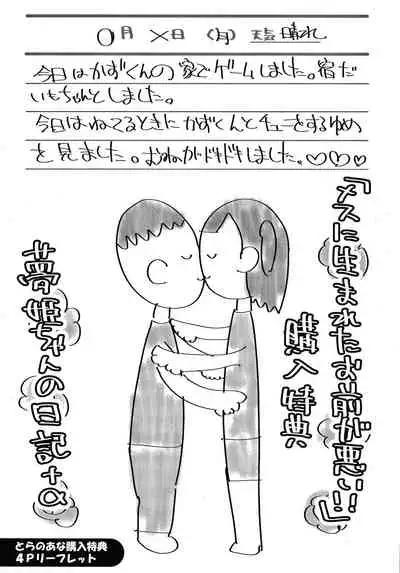 〇月 ×日 (月) 天気 晴れ
今日はかずくんの家でゲームしました。宿だ
いもちゃんとしました。
今日はねてるときにかずくんとチューをするゆめ
を見ました。おむねがドキドキしました。♡♡♡
「メスに生まれたお前が悪い!」
購入特典
夢姫ちゃんの日記+α
とらのあな購入特典
4Pリーフレット